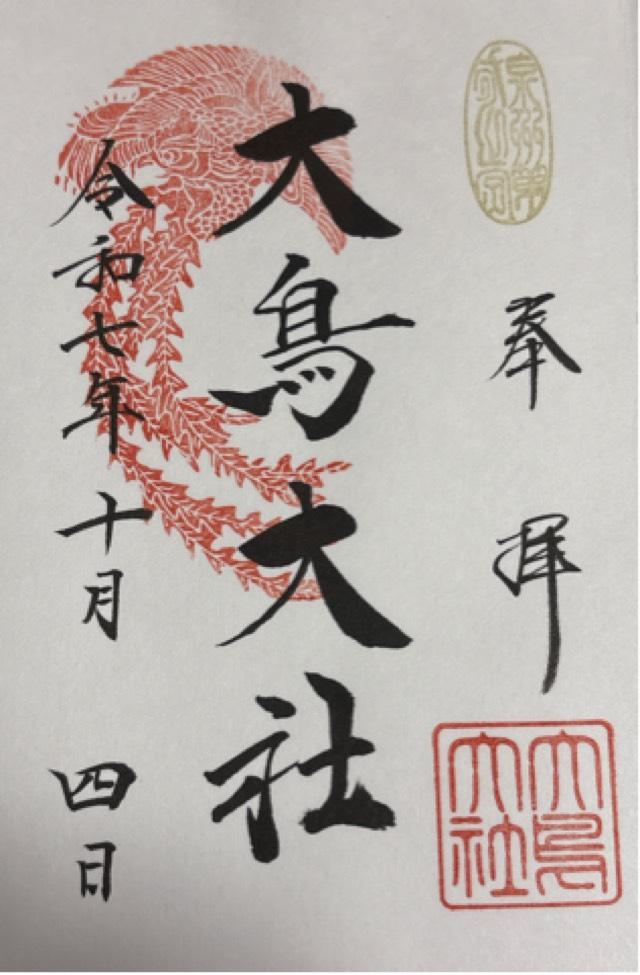 泉州第
奉拝
大鳥
大社
大鳥大社
令和七年十月四日